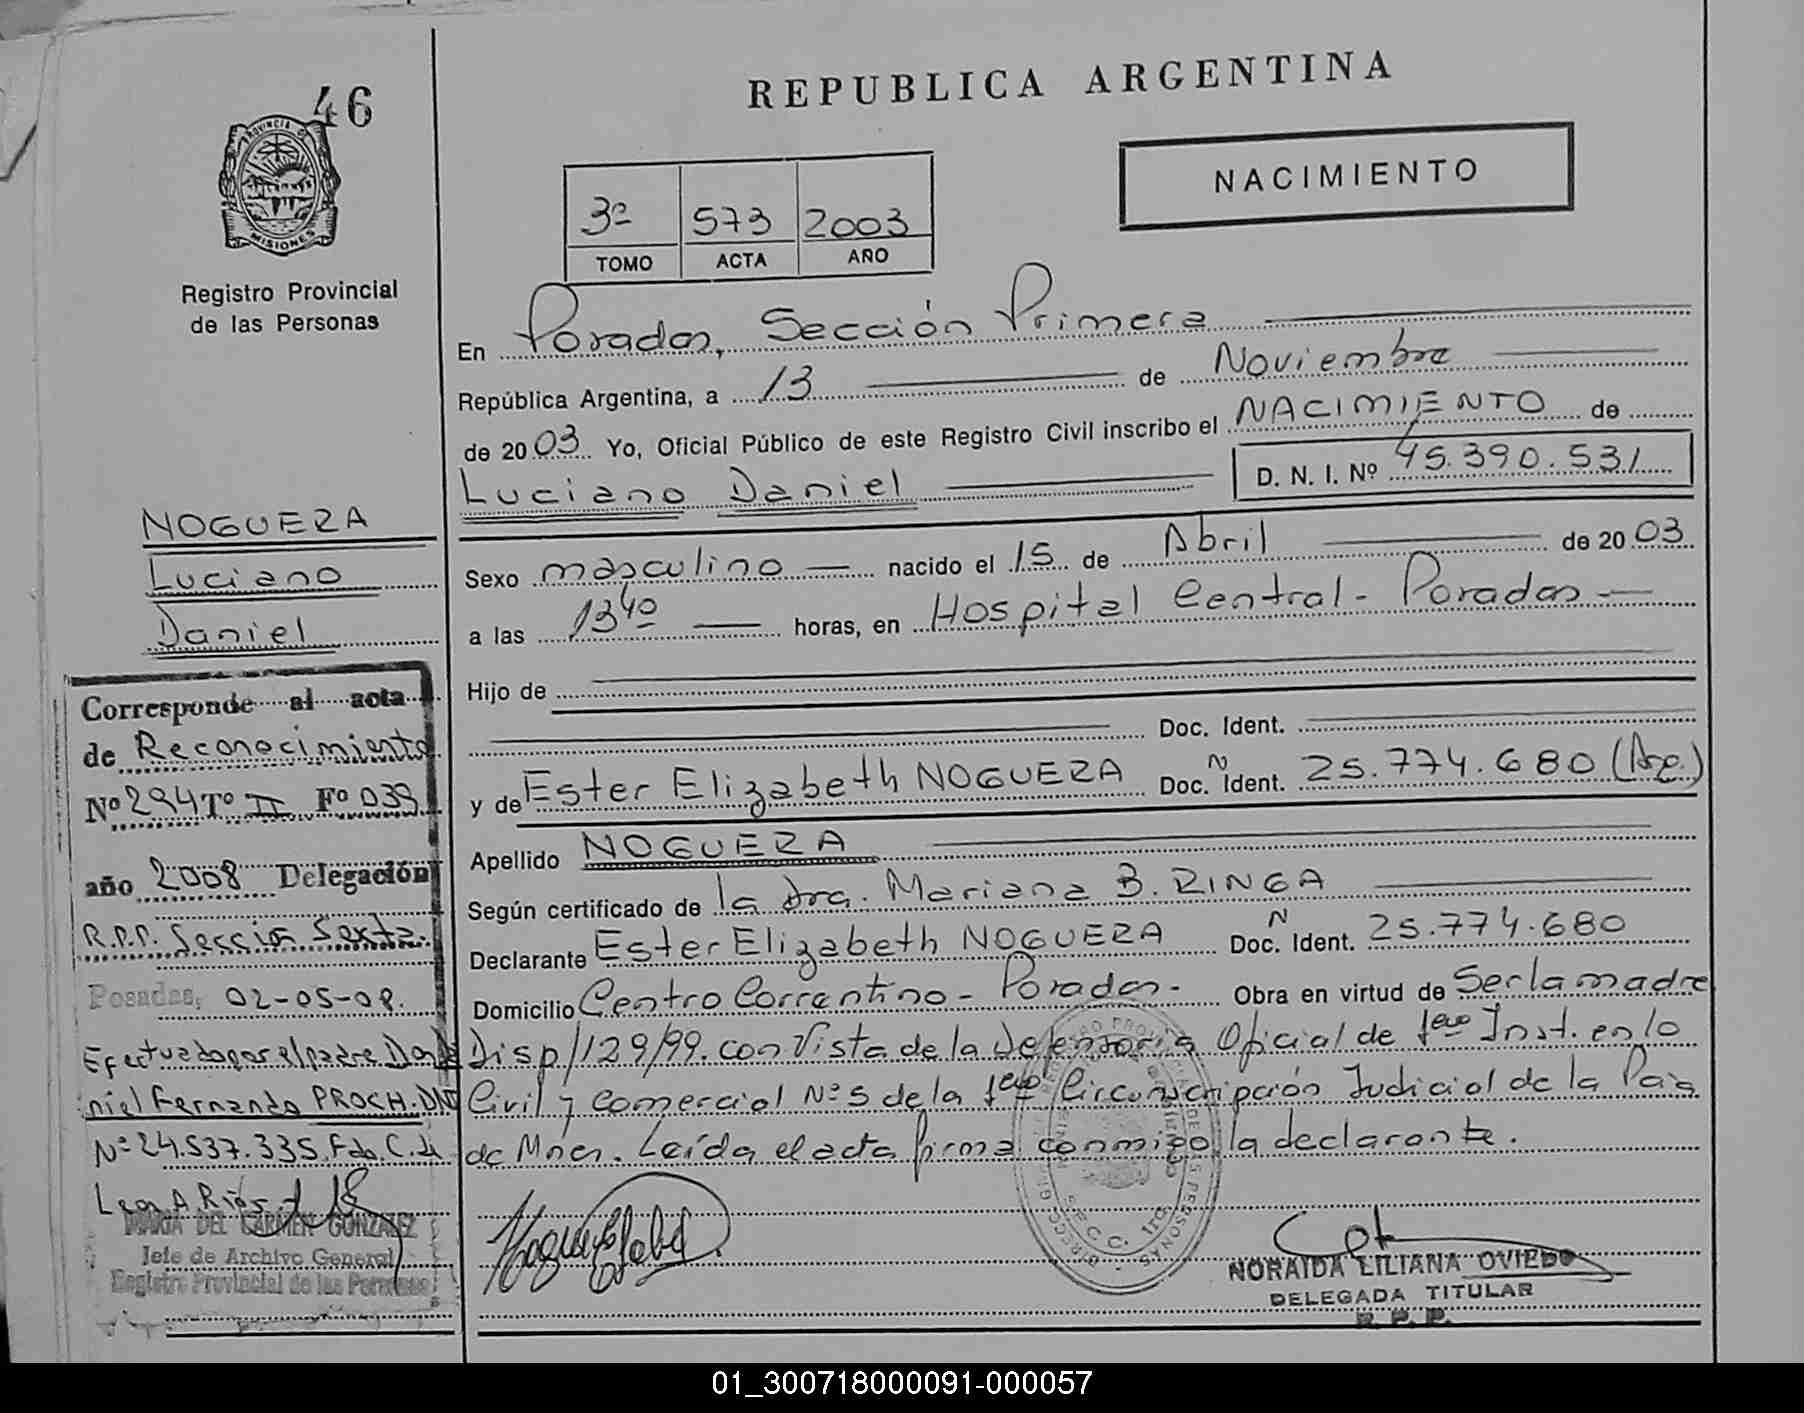 46
PROVINCIA DE
MISIONES
Registro Provincial
de las Personas
REPUBLICA ARGENTINA
NACIMIENTO
3º 573 2003
TOMO ACTA AÑO
En Posadas, Sección Primera
República Argentina, a 13 de Noviembre
de 2003 Yo, Oficial Público de este Registro Civil inscribo el NACIMIENTO de
Luciano Daniel D. N. I. Nº 45.390.531
Sexo masculino nacido el 15 de Abril de 2003
a las 13 40 horas, en Hospital Central - Posadas
Hijo de
Doc. Ident.
y de Ester Elizabeth NOGUERA Doc. N Ident. 25.774.680 (Arg.)
Apellido NOGUERA
Según certificado de la Dra. Mariana B. RINGA
Declarante Ester Elizabeth NOGUERA Doc. N Ident. 25.774.680
Domicilio Centro Correntino - Posadas - Obra en virtud de Ser la madre
Disp/129/99. con Vista de la Defensoria Oficial de 1era Inst. en lo
Civil y Comercial Nº 5 de la 1era Circunscripción Judicial de la Pcia
de Mnes. Leída el acta firma conmigo la declarante.
NORAIDA LILIANA OVIEDO
DELEGADA TITULAR
R. P. P.
NOGUERA
Luciano
Daniel
Corresponde al acta
de Reconocimiento
Nº 294 Tº II Fº 039
año 2008 Delegación
R.P.P. Sección Sexta.
Posadas, 02-05-08.
Efectuado por el padre Da
niel Fernando PROCH. DNI
Nº 24.537.335 Fdo. C. de
Leon A. Rios
MARIA DEL CARMEN GONZALEZ
Jefe de Archivo General
Registro Provincial de las Personas
01_300718000091-000057